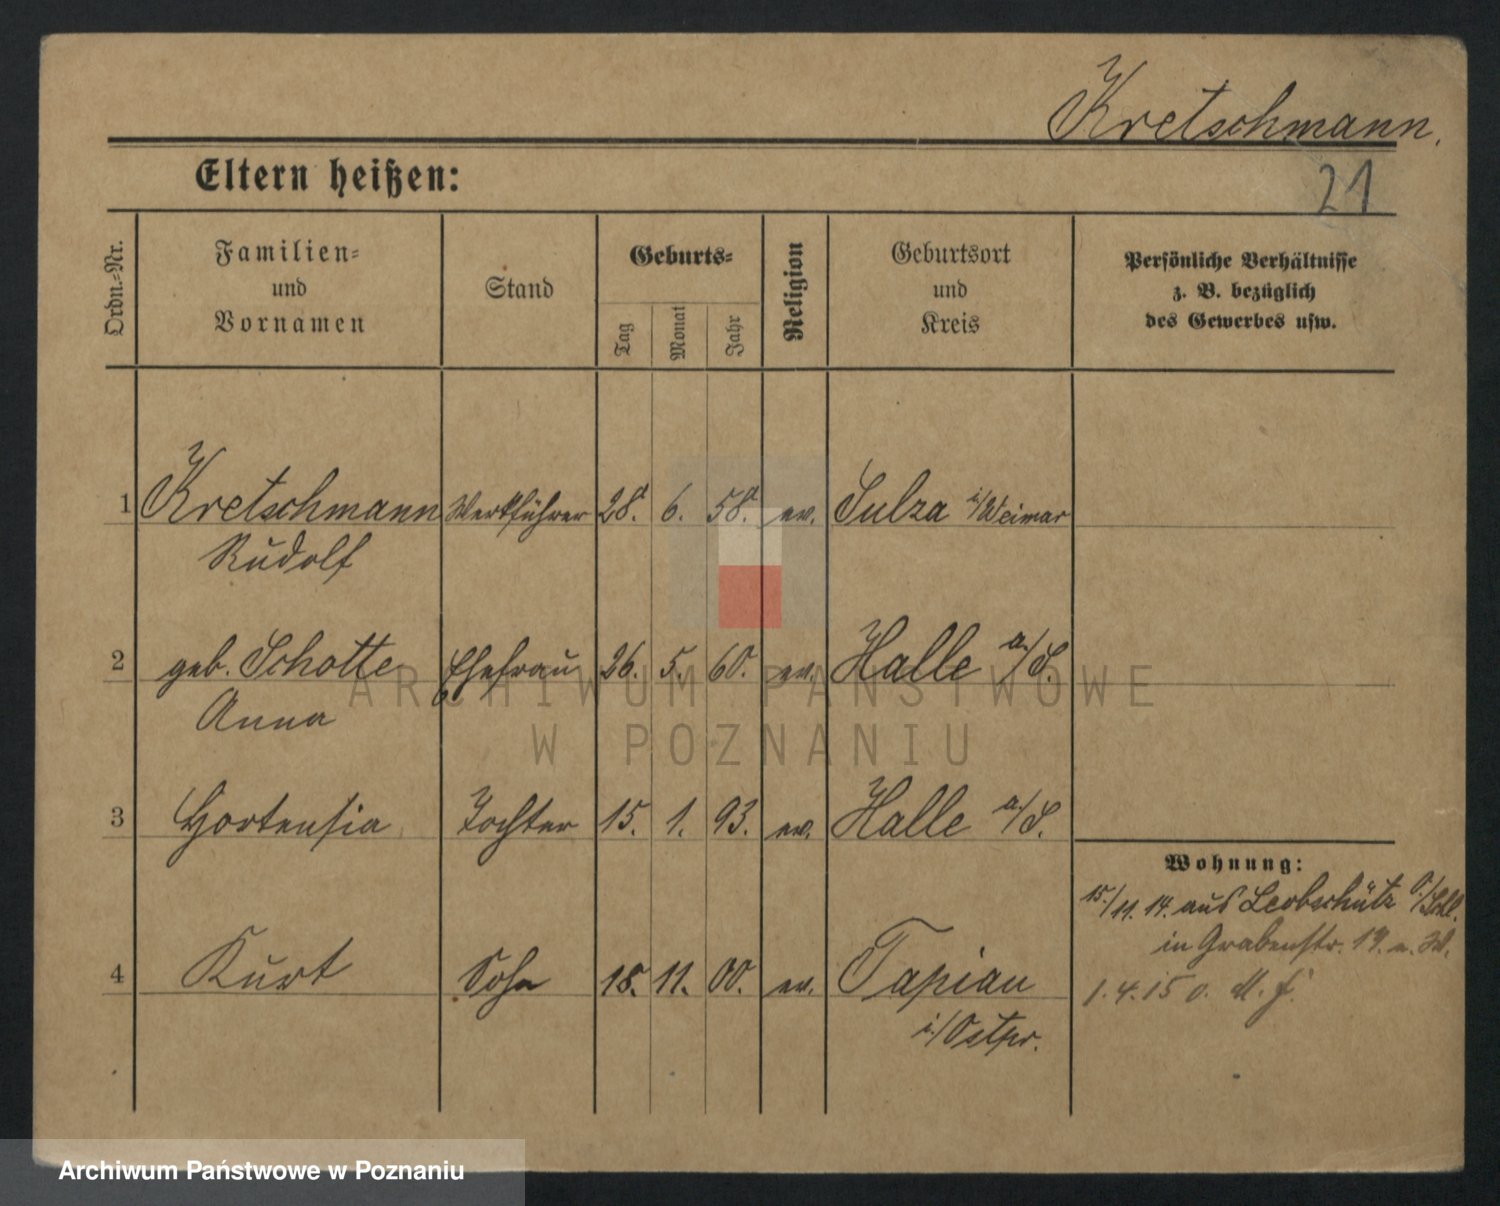 Kretschmann.
Eltern heißen:
21
Ordn.-Nr.
Familien-
und
Vornamen
Stand
Geburts-
Tag
Monat
Jahr
Religion
Geburtsort
und
Kreis
Persönliche Verhältnisse
z. B. bezüglich
des Gewerbes usw.
1 Kretschmann Werkführer 28. 6. 58. ev. Sulza i/Weimar
Rudolf
2 geb. Schotte Ehefrau 26. 5. 60. ev. Halle a/S.
Anna
3 Hortensia Tochter 15. 1. 93. ev. Halle a/S.
4 Kurt Sohn 18. 11. 00. ev. Tapiau
i/Ostpr.
Wohnung:
15/11. 14. aus Leobschütz O/Schl.
in Grabenstr. 19. n. W.
1.4.15 v. M. f.
ARCHIWUM PAŃSTWOWE
W POZNANIU
Archiwum Państwowe w Poznaniu